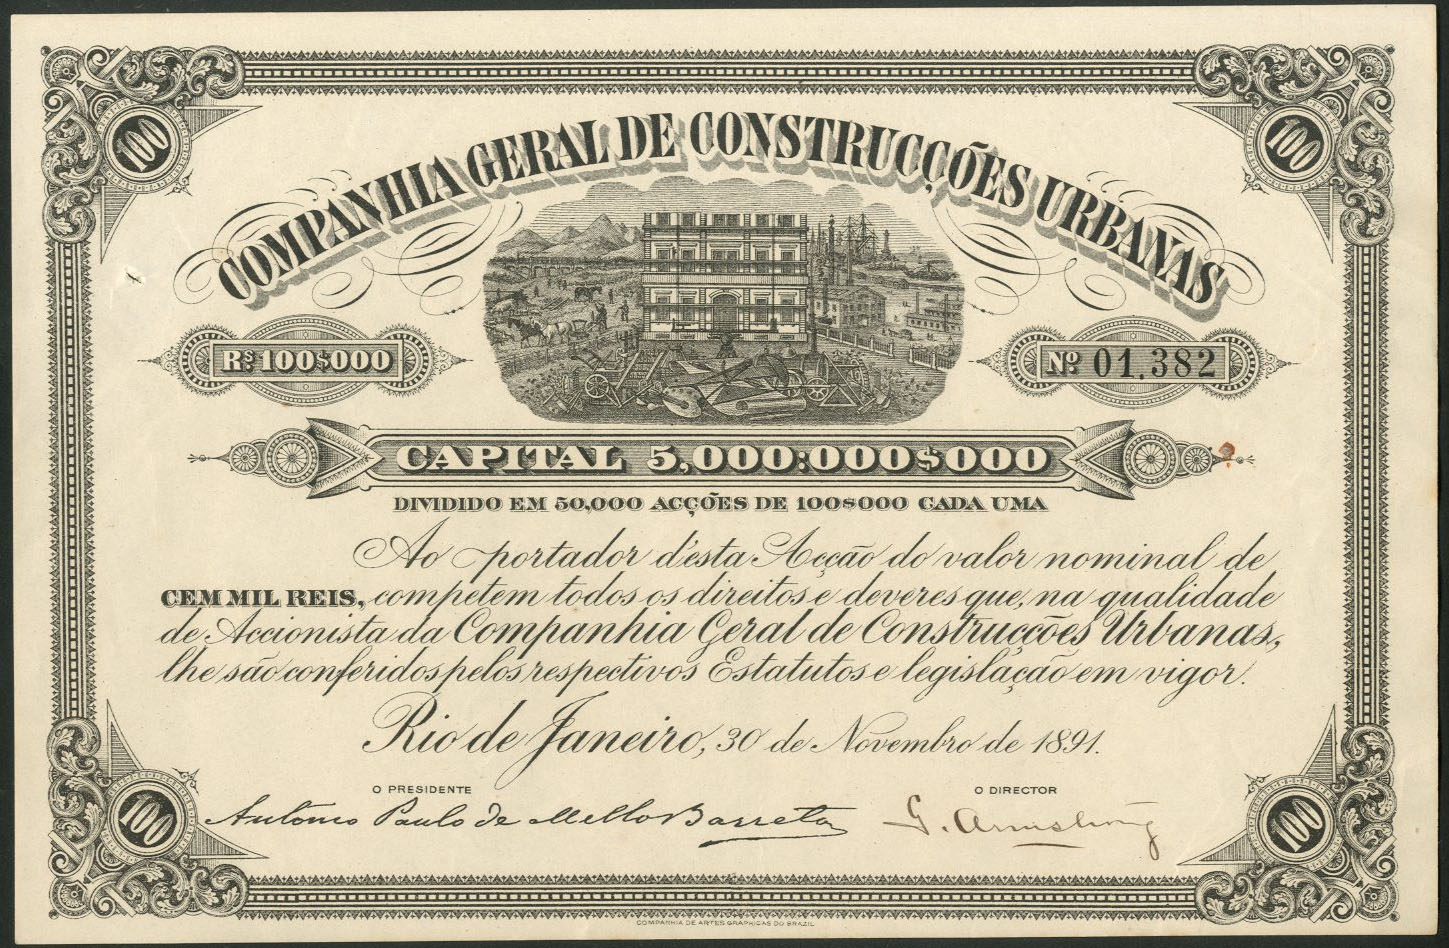 100
100
COMPANHIA GERAL DE CONSTRUCÇÕES URBANAS
RS 100$000
Nº 01,382
CAPITAL 5,000:000$000
DIVIDIDO EM 50,000 ACÇÕES DE 100$000 CADA UMA
Ao portador d'esta Acção do valor nominal de
CEM MIL REIS, competem todos os direitos e deveres que, na qualidade
de Accionista da Companhia Geral de Construcções Urbanas,
lhe são conferidos pelos respectivos Estatutos e legislação em vigor.
Rio de Janeiro, 30 de Novembro de 1891.
O PRESIDENTE
O DIRECTOR
Antonio Paulo de Mello Barreto
G. Armstrong
100
100
COMPANHIA DE ARTES GRAPHICAS DO BRAZIL